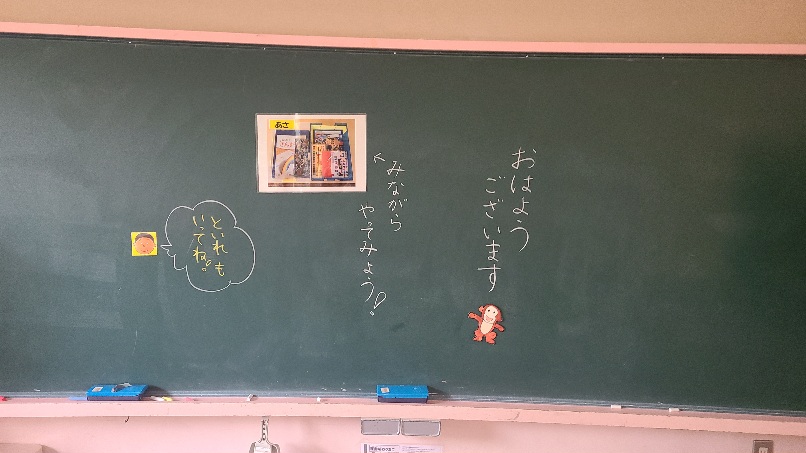 おはよう
ございます
みながら
やってみよう!
あさ
といれも
いってね。